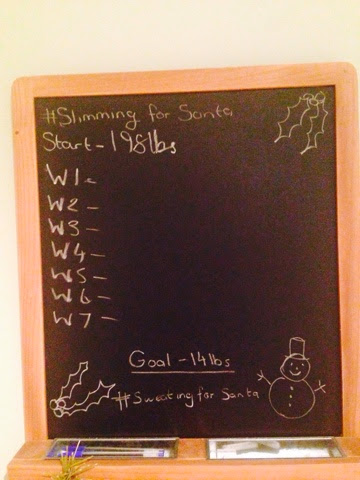 #Slimming for Santa
Start - 198lbs
W1-
W2-
W3-
W4-
W5-
W6-
W7-
Goal - 14lbs
#Sweating for Santa